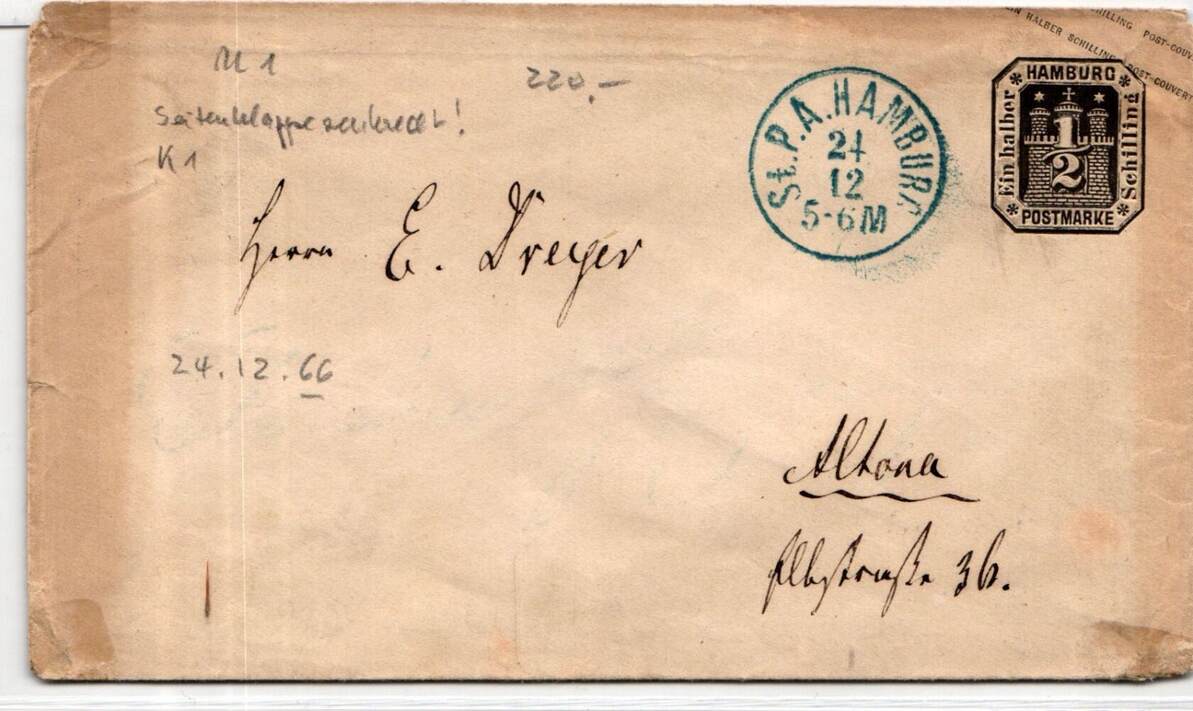 EIN HALBER SCHILLING POST-COUVERT
SCHILLING POST-COUV
HAMBURG
Ein halber
1/2
Schilling
POSTMARKE
St. P. A. HAMBURG
24
12
5-6M
U 1
220,-
Seitenklappe senkrecht!
K 1
Herrn E. Dreyer
24.12.66
Altona
Elbstraße 36.